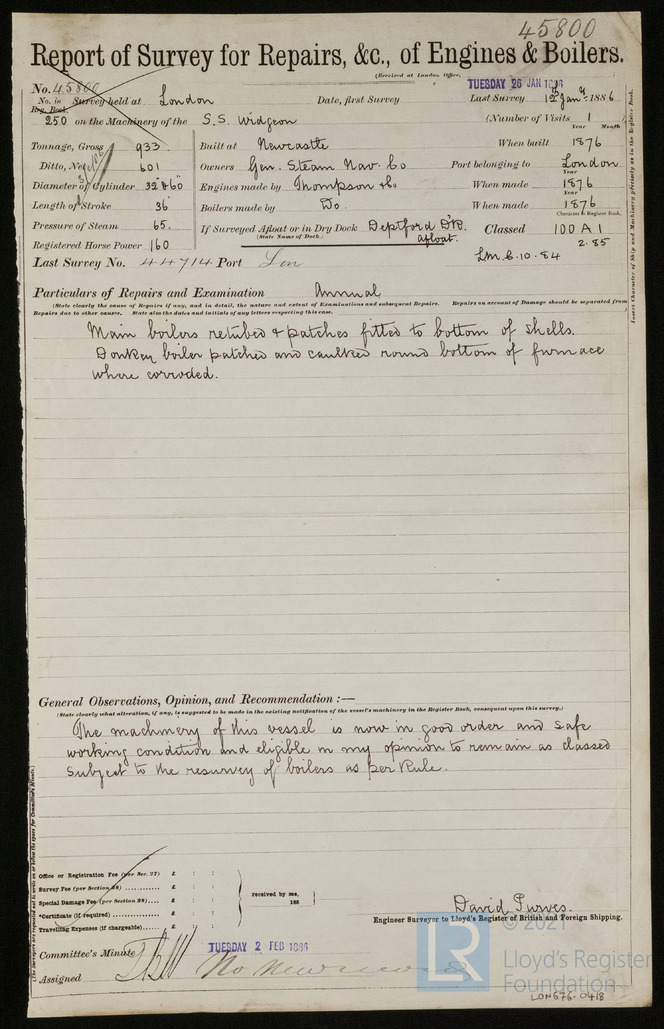 45800
Report of Survey for Repairs, &c., of Engines & Boilers.
(Received at London Office,
TUESDAY 26 JAN 1886
No. 45800
No. in Reg. Book. Survey held at London Date, first Survey Last Survey 12th Jany. 1886
250 on the Machinery of the S.S. Widgeon (Number of Visits 1
Year Month
Tonnage, Gross 933 Built at Newcastle When built 1876
Ditto, Net 601 Owners Gen. Steam Nav. Co Port belonging to London
Year
Diameter of Cylinder 32" & 60" Engines made by Thompson & Co When made 1876
Year
Length of Stroke 36" Boilers made by Do. When made 1876
Character in Register Book.
Pressure of Steam 65. If Surveyed Afloat or in Dry Dock Deptford Dk. Classed 100 A 1
(State Name of Dock.) afloat. 2.85
Registered Horse Power 160
Last Survey No. 44714 Port Lon LM.C.10.84
Insert Character of Ship and Machinery precisely as in the Register Book.
Particulars of Repairs and Examination Annual
(State clearly the cause of Repairs if any, and in detail, the nature and extent of Examinations and subsequent Repairs. Repairs on account of Damage should be separated from
Repairs due to other causes. State also the dates and initials of any letters respecting this case.)
Main boilers retubed & patches fitted to bottom of shells.
Donkey boiler patched and caulked round bottom of furnace
where corroded.
General Observations, Opinion, and Recommendation :—
(State clearly what alteration, if any, is suggested to be made in the existing notification of the vessel's machinery in the Register Book, consequent upon this survey.)
The machinery of this vessel is now in good order and safe
working condition and eligible in my opinion to remain as classed
subject to the resurvey of boilers as per Rule.
Office or Registration Fee (per Sec. 27) £ : :
Survey Fee (per Section 28) £ : :
Special Damage Fee (per Section 28) £ : :
*Certificate (if required) £ : :
Travelling Expenses (if chargeable) £ : :
received by me,
188
David Purves.
Engineer Surveyor to Lloyd's Register of British and Foreign Shipping.
Committee's Minute TUESDAY 2 FEB 1886
Assigned
© 2021
LR
Lloyd's Register
Foundation
LON676-0418